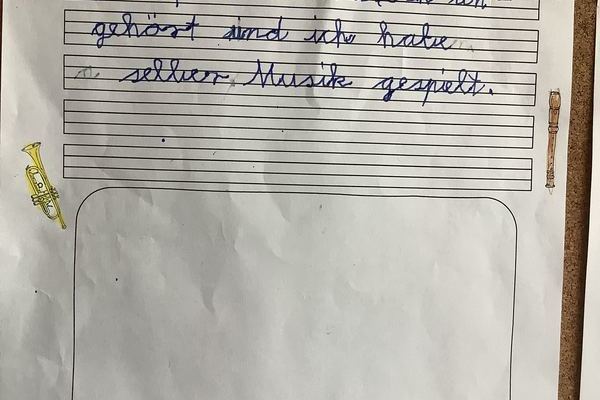 gehört und ich habe
selber Musik gespielt.